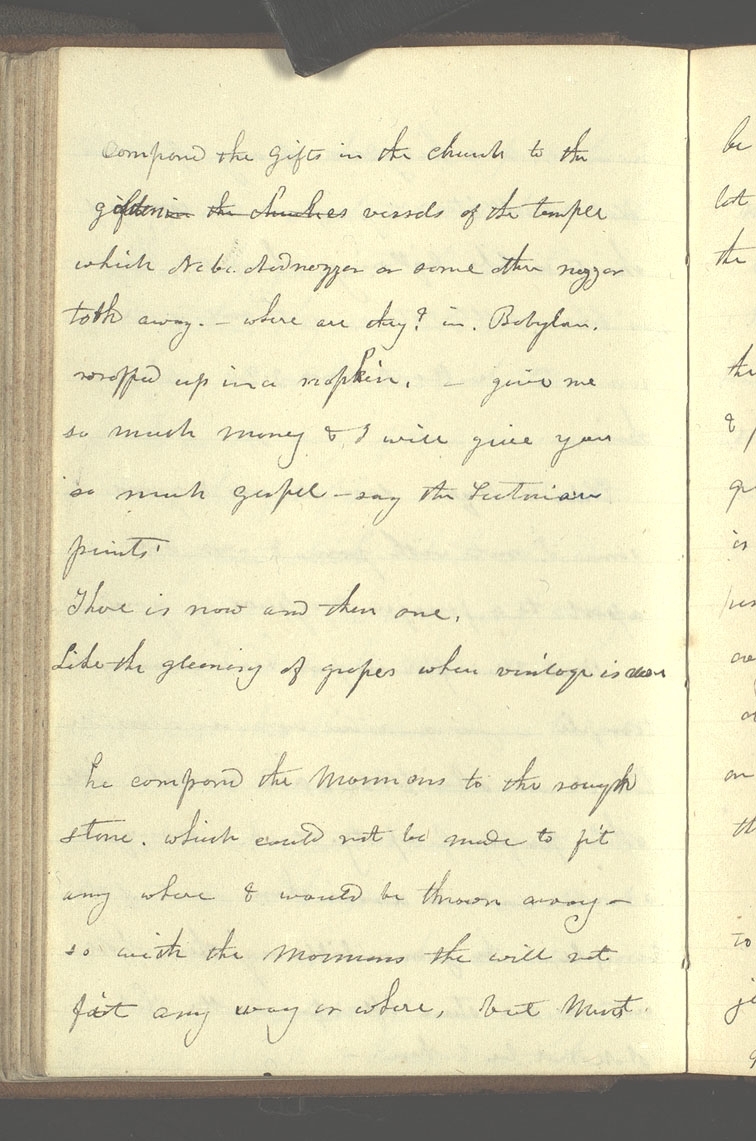 compared the gifts in the church to the
gifts in the churches vessels of the temple
which Nebuchadnezzar or some other nezzar
toth away. - where are they? in. Babylon.
wrapped up in a napkin. - give me
so much money & I will give you
so much gospel - say the Sectarian
priests'
There is now and then one.
Like the gleening of grapes when vintage is
he compared the Mormons to the rough
stone. which could not be made to fit
any where & would be thrown away -
so with the Mormons the will not
fit any way or where, but must
be
lot
the
the
&
is
to